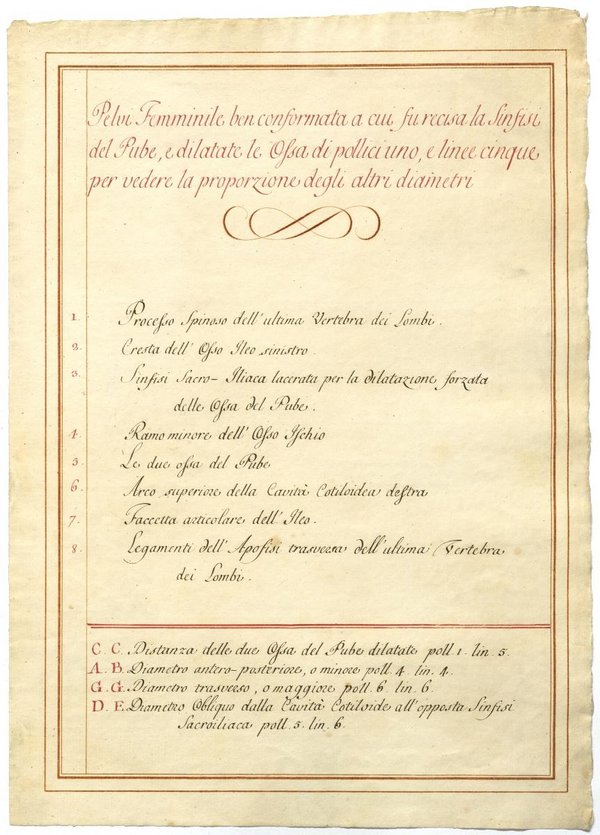 Pelvi Femminile ben conformata a cui fu recisa la Sinfisi
del Pube, e dilatate le Ossa di pollici uno, e linee cinque
per vedere la proporzione degli altri diametri
1. Processo Spinoso dell'ultima Vertebra dei Lombi.
2. Cresta dell'Osso Ileo sinistro.
3. Sinfisi Sacro-Iliaca lacerata per la dilatazione forzata
delle Ossa del Pube.
4. Ramo minore dell'Osso Ischio
5. Le due ossa del Pube
6. Arco superiore della Cavità Cotiloidea destra
7. Faccetta articolare dell'Ileo.
8. Legamenti dell'Apofisi trasversa dell'ultima Vertebra
dei Lombi.
C. C. Distanza delle due Ossa del Pube dilatate poll. 1. lin. 5.
A. B. Diametro antero-posteriore, o minore poll. 4. lin. 4.
G. G. Diametro trasverso, o maggiore poll. 6 lin. 6.
D. E. Diametro Obliquo dalla Cavità Cotiloide all'opposta Sinfisi
Sacroiliaca poll. 5. lin. 6.